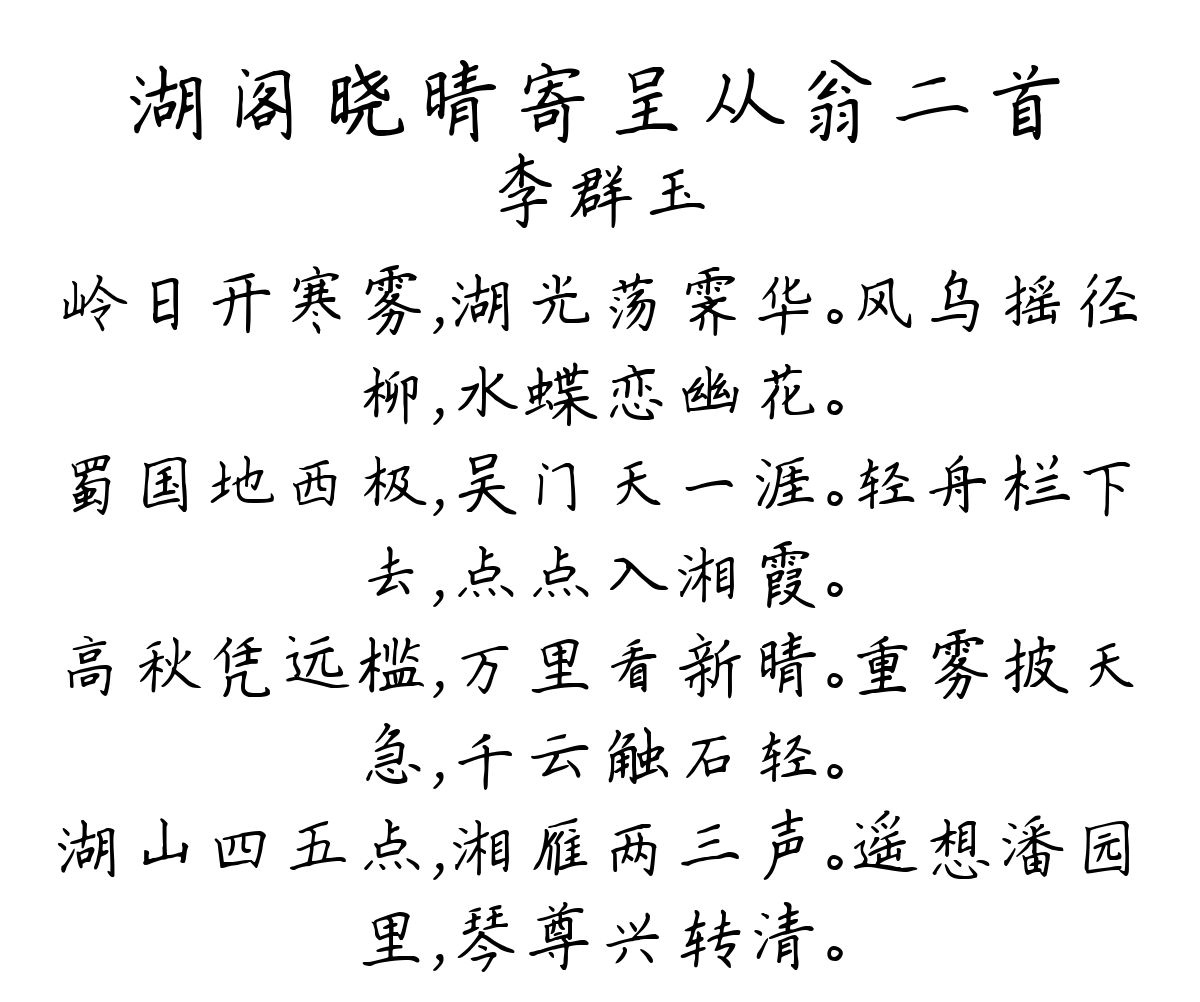 湖阁晓晴寄呈从翁二首
李群玉
岭日开寒雾,湖光荡霁华。风乌摇径
柳,水蝶恋幽花。
蜀国地西极,吴门天一涯。轻舟栏下
去,点点入湘霞。
高秋凭远槛,万里看新晴。重雾披天
急,千云触石轻。
湖山四五点,湘雁两三声。遥想潘园
里,琴尊兴转清。